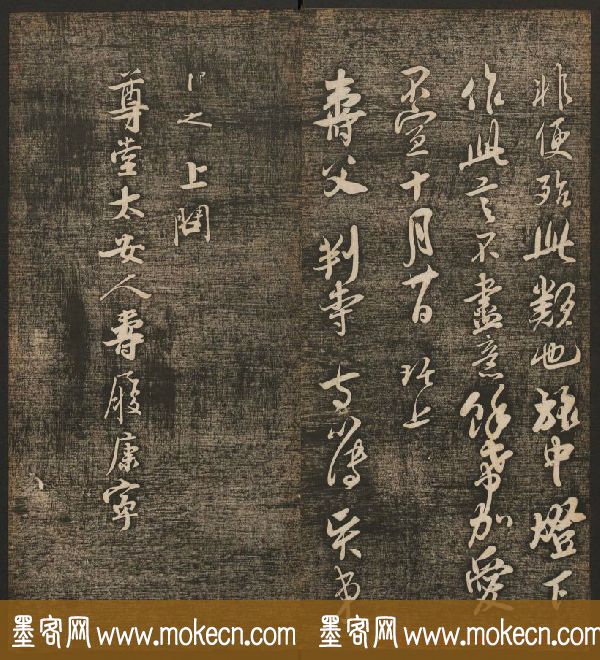 非便殆此類也旅中燈下
作此言不盡意餘希加愛
不宣十月 日 珏上
壽父判 
上問
尊堂太安人壽履康寧
墨客网 www.mokecn.com 墨客网 www.mokecn.com